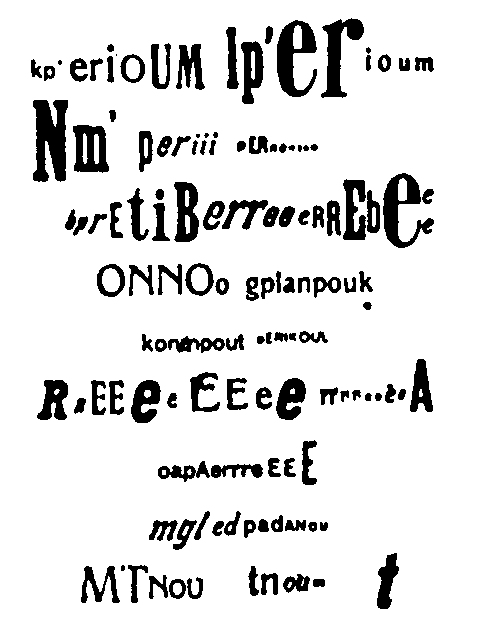 kp'erioUM lp'er ioum
Nm' periii pER
bprEtiBerreeeeRREbeee
ONNOo gplanpouk
konmpout pERIKOUL
RreEEe e EEee rrr A
oapAerrre EE E
mgl ed padANou
M'TNou tnou t